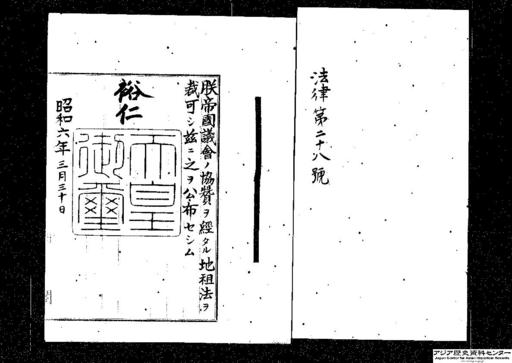 法律第二十八號
朕帝國議會ノ協賛ヲ經タル地租法ヲ
裁可シ茲ニ之ヲ公布セシム
裕仁
天皇御璽
昭和六年三月三十日
アジア歴史資料センター
Japan Center for Asian Historical Records